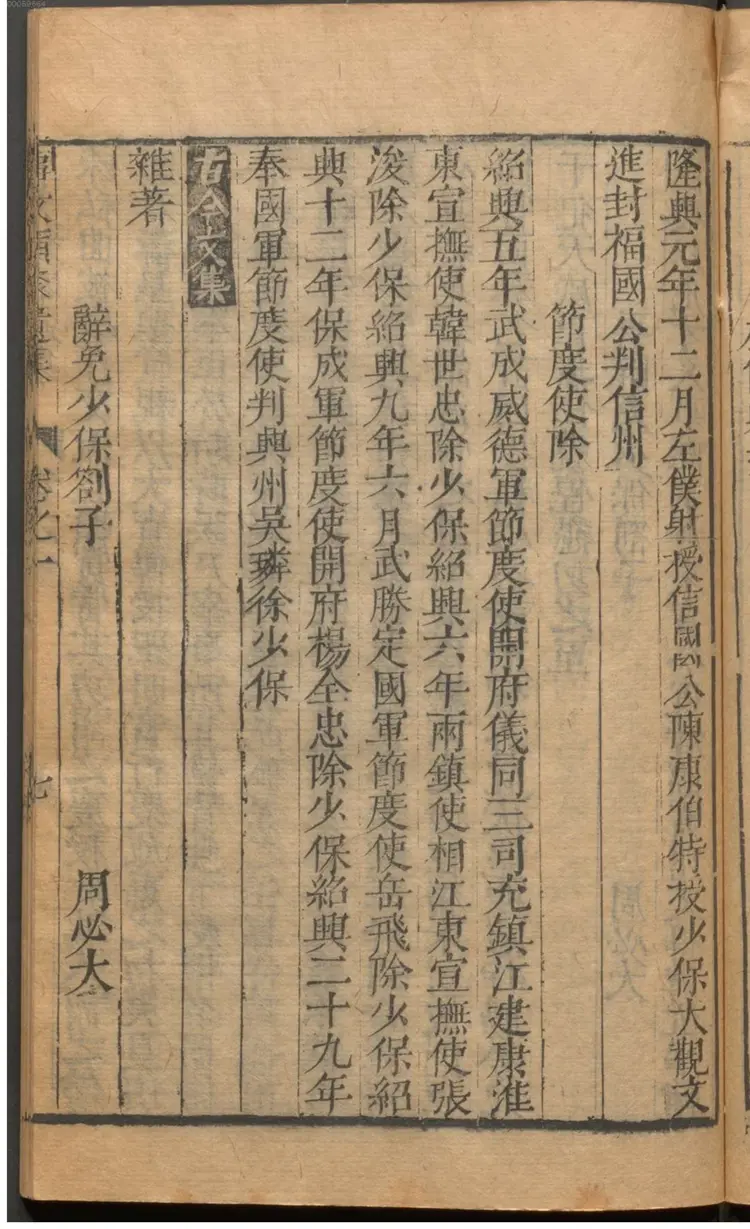 隆興元年十二月左僕射授信國公陳康伯特授少保大觀文
進封福國公判信州
節度使除
紹興五年武成威德軍節度使開府儀同三司充鎮江建康淮
東宣撫使韓世忠除少保紹興六年兩鎮使相江東宣撫使張
浚除少保紹興九年六月武勝定國軍節度使岳飛除少保紹
興十二年保成軍節度使開府楊全忠除少保紹興二十九年
奉國軍節度使判興州吳璘徐少保
古今文集
雜著
辭免少保劄子 周必大
卷之一 七
00089964